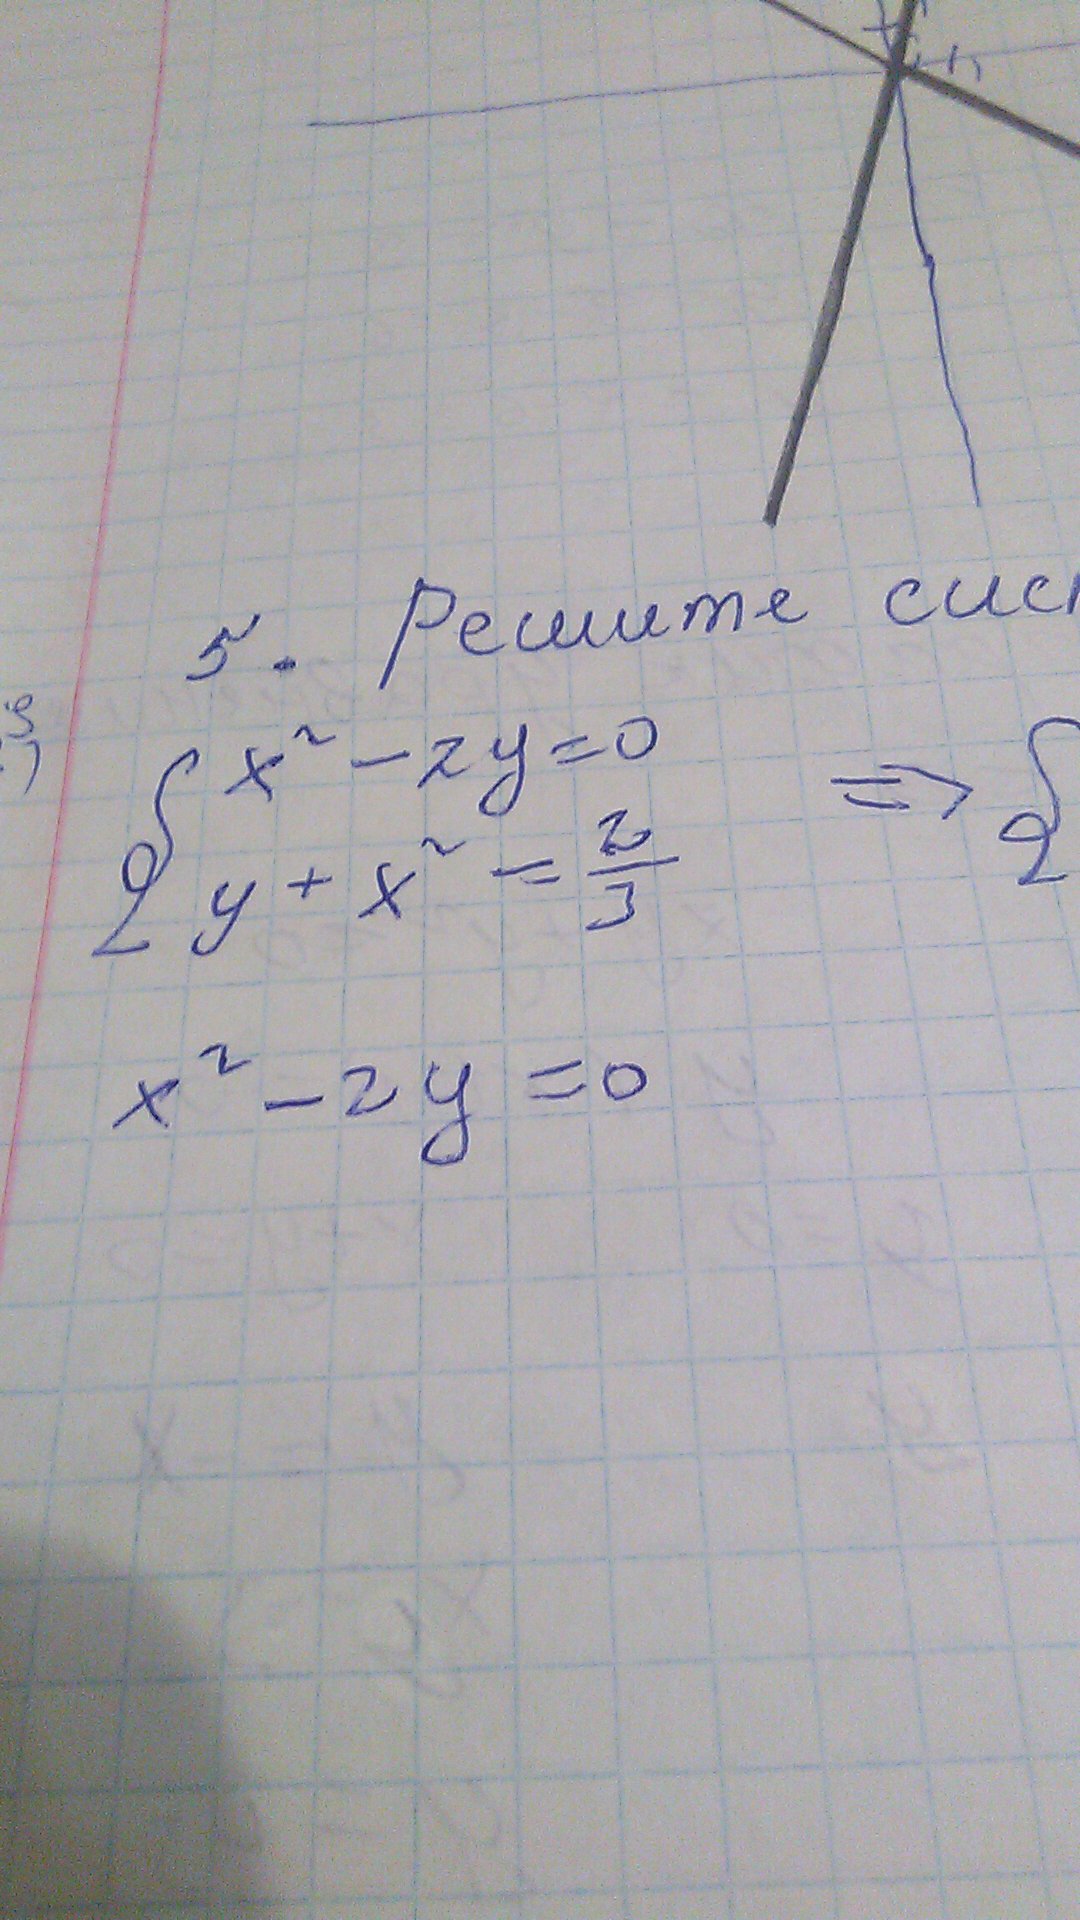 5. Решите
x² - 2y = 0 ⇒ {
{ y + x² = 2/3
x² - 2y = 0